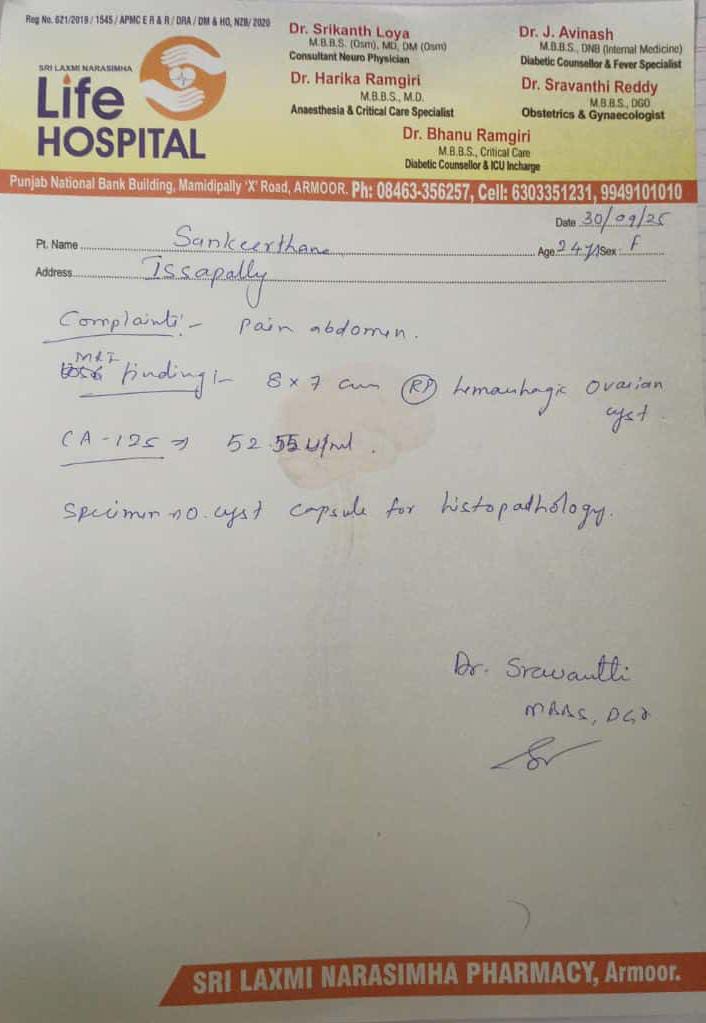 Reg No. 621/2019 / 1545 / APMC E R & R / DRA / DM & HO, NZB/ 2020
SRI LAXMI NARASIMHA
Life
HOSPITAL
Dr. Srikanth Loya
M.B.B.S. (Osm), MD, DM (Osm)
Consultant Neuro Physician
Dr. Harika Ramgiri
M.B.B.S., M.D.
Anaesthesia & Critical Care Specialist
Dr. J. Avinash
M.B.B.S., DNB (Internal Medicine)
Diabetic Counsellor & Fever Specialist
Dr. Sravanthi Reddy
M.B.B.S., DGO
Obstetrics & Gynaecologist
Dr. Bhanu Ramgiri
M.B.B.S., Critical Care
Diabetic Counsellor & ICU Incharge
Punjab National Bank Building, Mamidipally 'X' Road, ARMOOR. Ph: 08463-356257, Cell: 6303351231, 9949101010
Date 30/09/25
Pt. Name Sankeerthana Age 24y Sex: F
Address Issapally
Complaints:- Pain abdomen.
MRI
finding:- 8 x 7 cm hemorrhagic Ovarian
cyst.
CA-125 → 52.55 U/ml.
Specimen no. cyst capsule for histopathology.
Dr. Sravanthi
MBBS, DGO
SRI LAXMI NARASIMHA PHARMACY, Armoor.